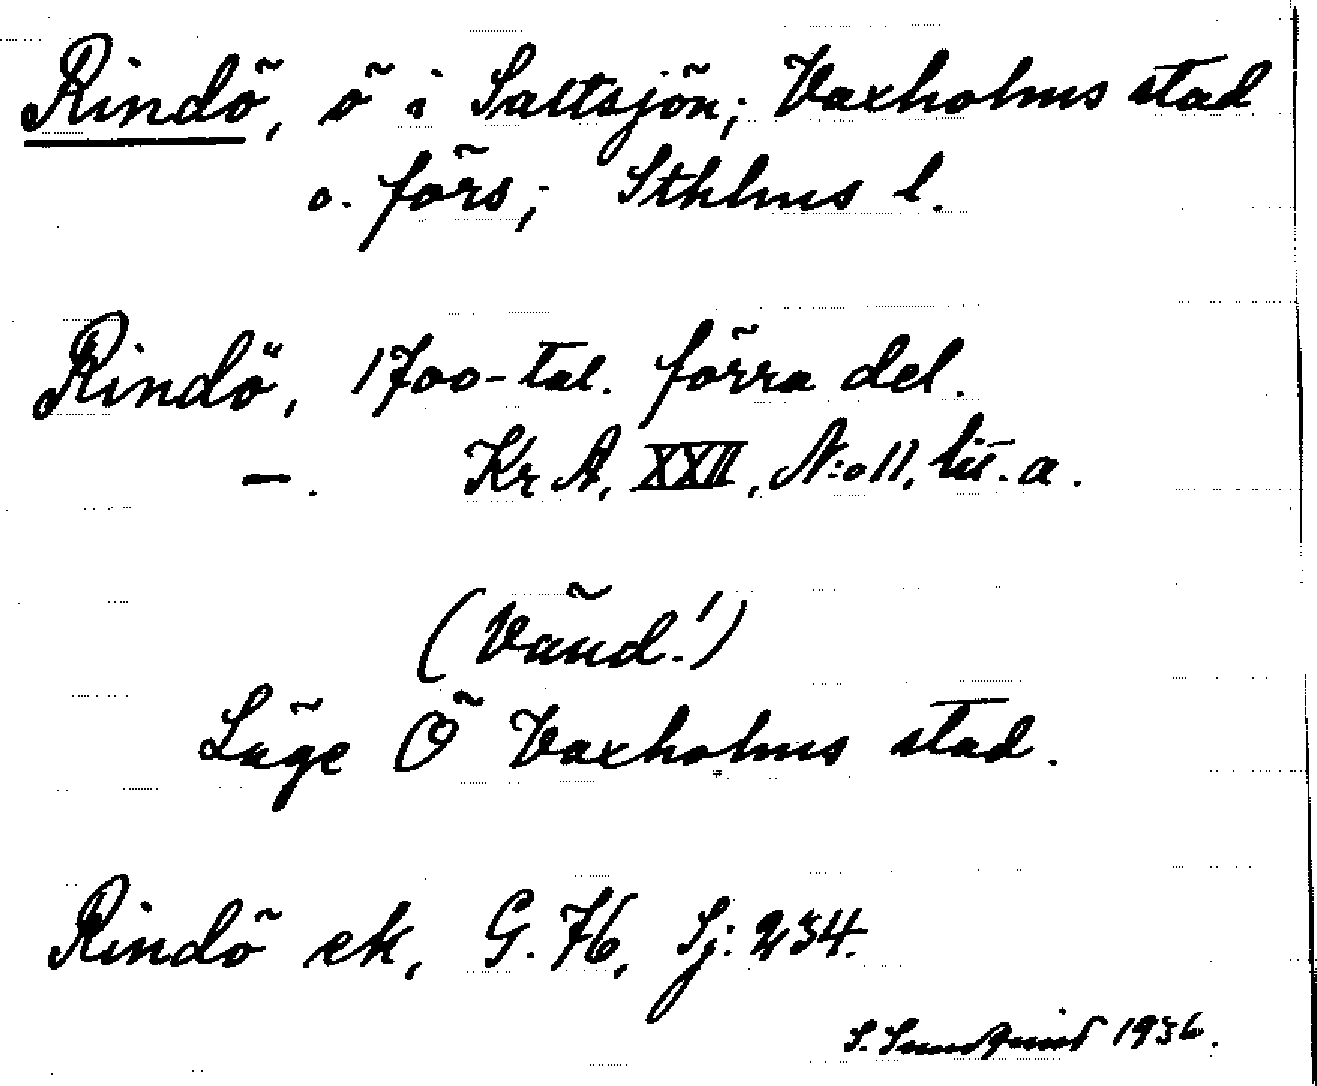 Rindö, ö i Saltsjön; Vaxholms stad
o. förs; Sthlms l.
Rindö, 1700-tal. förra del.
— . Kr A, XXII, N:o 11, lit. a.
(Vänd!)
Läge Ö Vaxholms stad.
Rindö ek, G. 76, Sj: 234.
S. Sundqvist 1936.